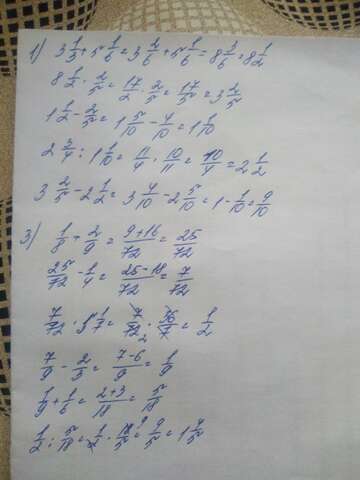 1) 3 1/3 + 5 1/6 = 3 2/6 + 5 1/6 = 8 3/6 = 8 1/2
8 1/2 · 2/5 = 17/2 · 2/5 = 17/5 = 3 2/5
1 1/2 - 2/5 = 1 5/10 - 4/10 = 1 1/10
2 3/4 : 1 1/10 = 11/4 · 10/11 = 10/4 = 2 1/2
3 2/5 - 2 1/2 = 3 4/10 - 2 5/10 = 1 - 1/10 = 9/10
3) 1/8 + 2/9 = 9+16/72 = 25/72
25/72 - 1/4 = 25-18/72 = 7/72
7/72 · 5 1/7 = 7/72 · 36/7 = 1/2
7/9 - 2/3 = 7-6/9 = 1/9
1/9 + 1/6 = 2+3/18 = 5/18
1/2 : 5/18 = 1/2 · 18/5 = 9/5 = 1 4/5